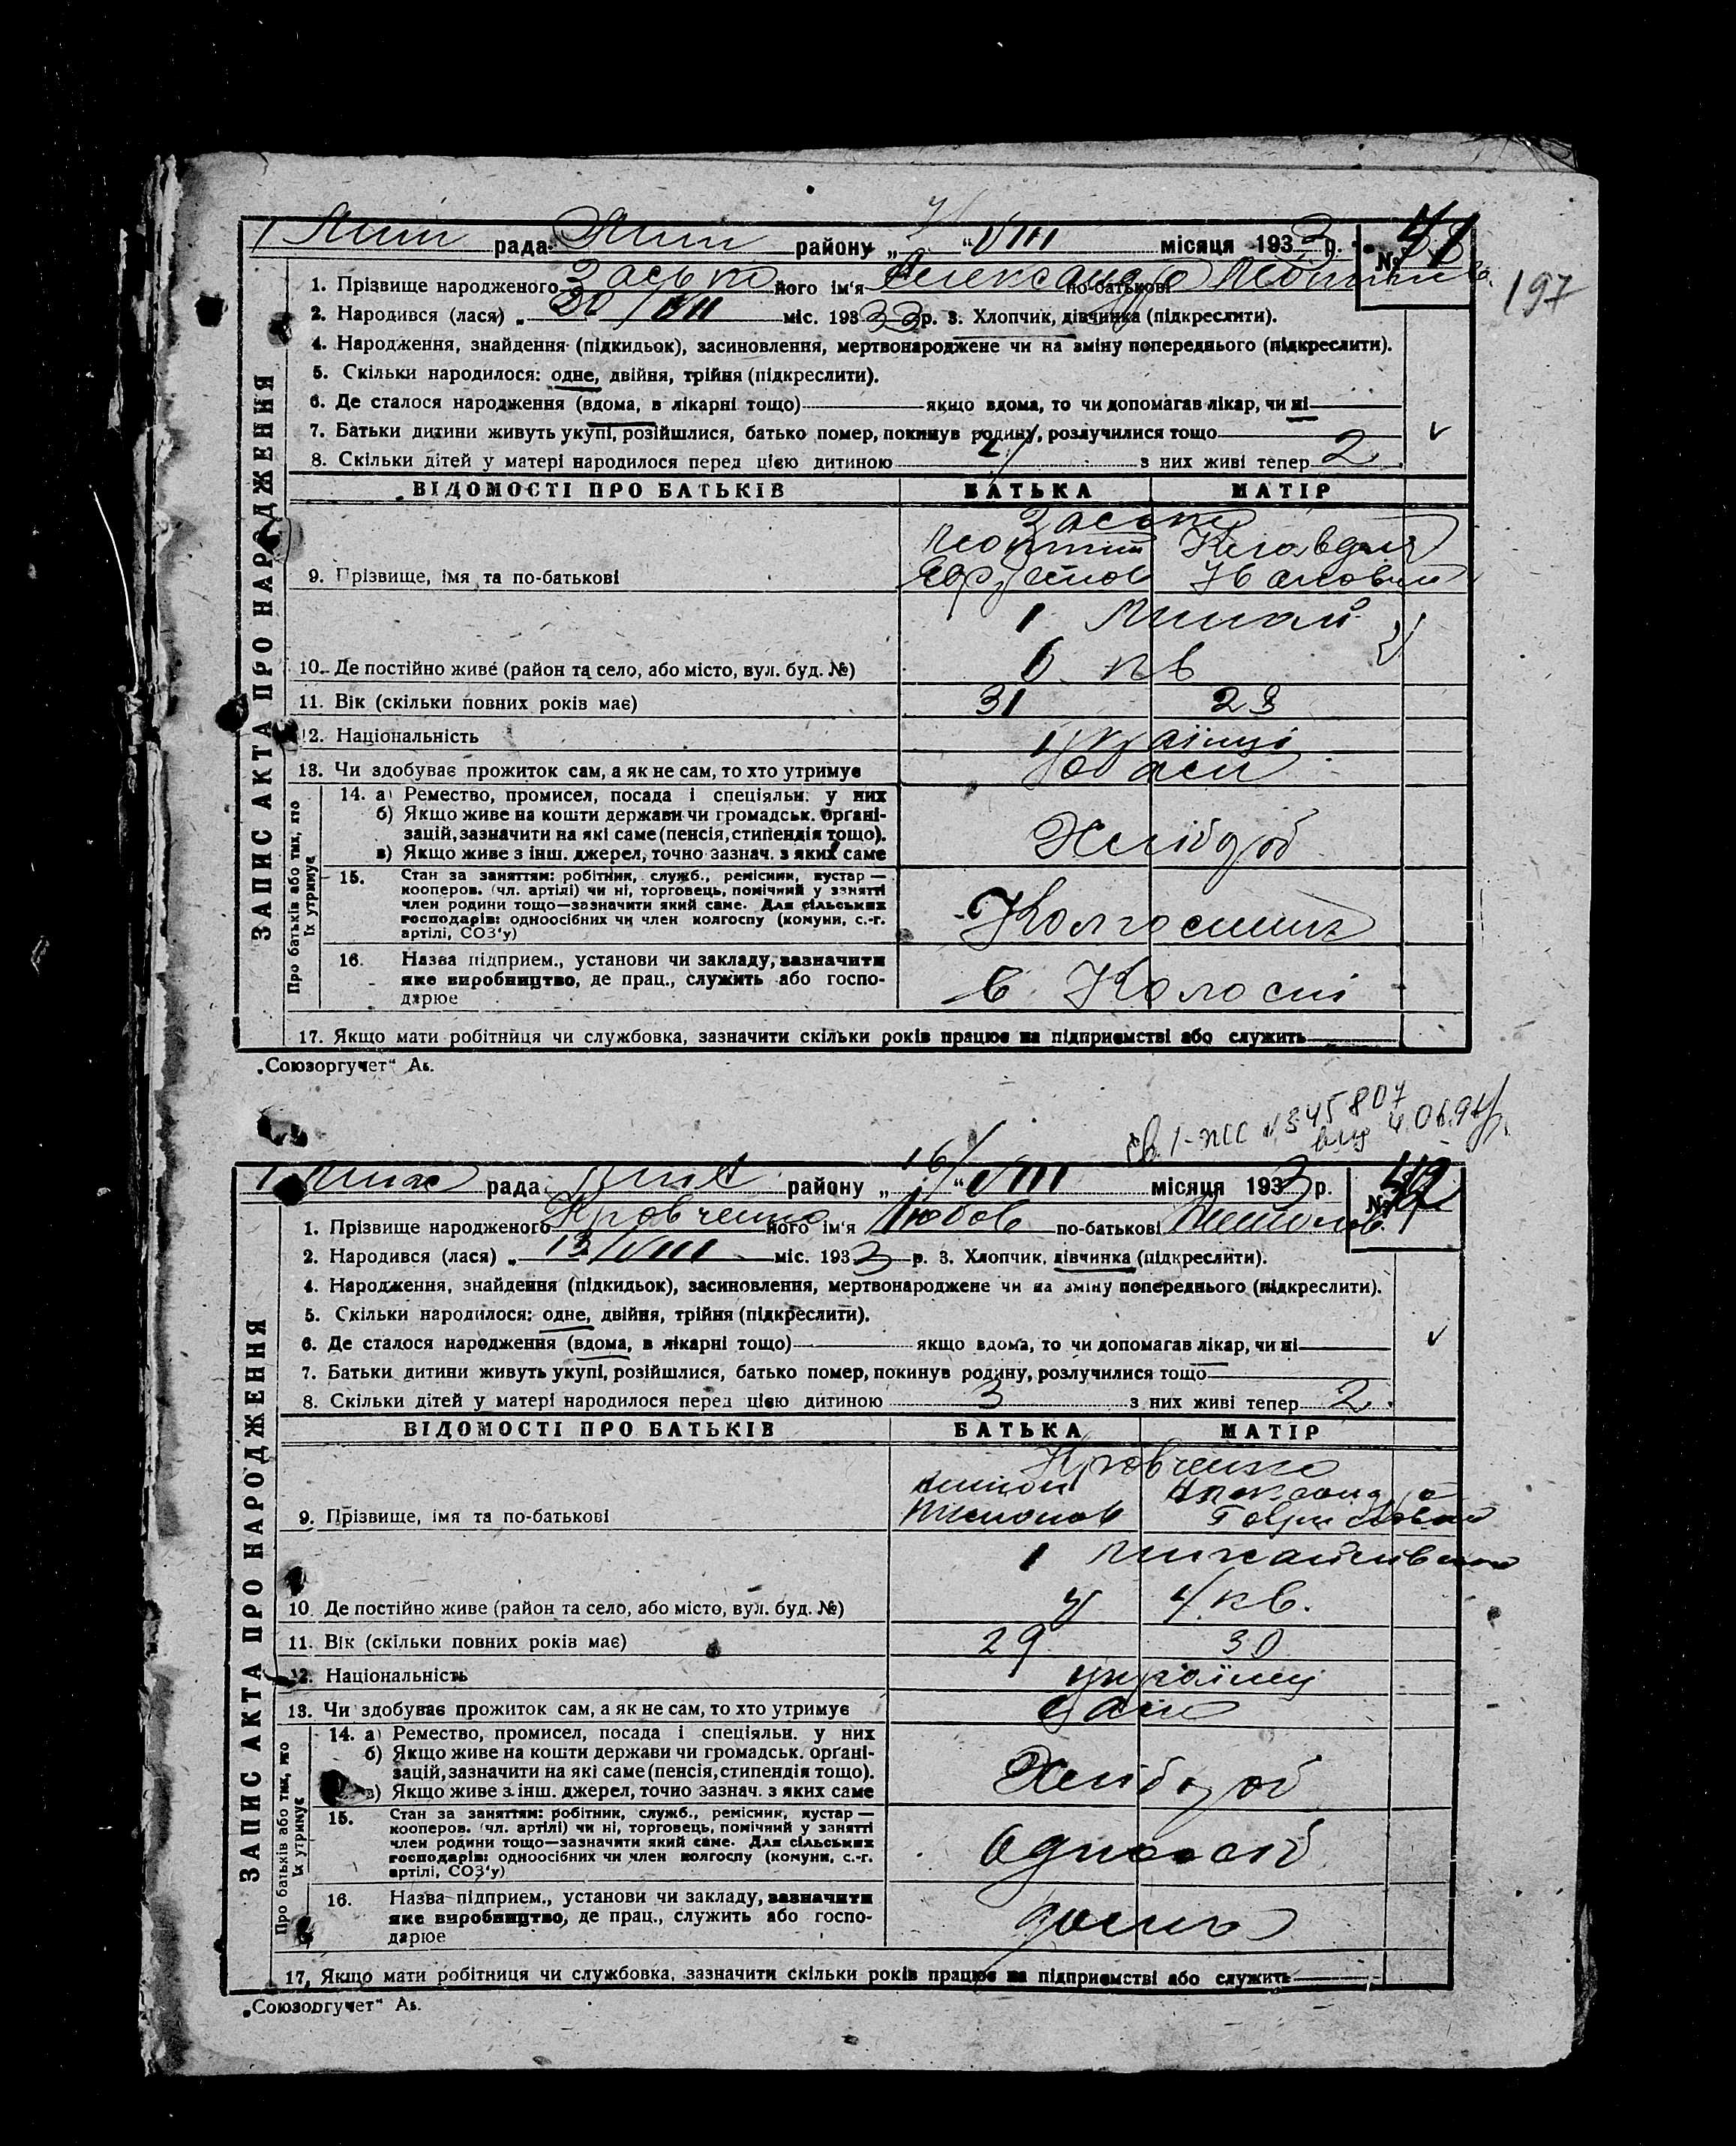 рада району „ 7/ “ VIII місяця 1933 р. № 41
197
1. Прізвище народженого Засько його ім‘я Александра по-батькові
2. Народився (лася) „ 30/VII міс. 193 33 р. 3. Хлопчик, дівчинка (підкреслити).
4. Народження, знайдення (підкидьок), засиновлення, мертвонароджене чи на зміну попереднього (підкреслити).
5. Скільки народилося: одне, двійня, трійня (підкреслити).
6. Де сталося народження (вдома, в лікарні тощо) якщо вдома, то чи допомагав лікар, чи ні
7. Батьки дитини живуть укупі, розійшлися, батько помер, покинув родину, розлучилися тощо
8. Скільки дітей у матері народилося перед цією дитиною з них живі тепер 2
ВІДОМОСТІ ПРО БАТЬКІВ БАТЬКА МАТІР
Засько
Клавдия
9. Прізвище, імя та по-батькові
10. Де постійно живе (район та село, або місто, вул. буд. №)
11. Вік (скільки повних років має) 31 23
12. Національність українці
13. Чи здобуває прожиток сам, а як не сам, то хто утримує
14. а) Ремество, промисел, посада і спеціяльн. у них
б) Якщо живе на кошти держави чи громадськ. органі-
зацій, зазначити на які саме (пенсія, стипендія тощо).
в) Якщо живе з інш. джерел, точно зазнач. з яких саме
Хлібороб
15. Стан за заняттям: робітник, служб., ремісник, кустар —
кооперов. (чл. артілі) чи ні, торговець, помічний у занятті
член родини тощо—зазначити який саме. Для сільських
господарів: одноосібних чи член колгоспу (комуни, с.-г.
артілі, СОЗ‘у)
Колгоспник
16. Назва підприєм., установи чи закладу, зазначити
яке виробництво, де прац., служить або госпо-
дарюе
в Колоспі
17. Якщо мати робітниця чи службовка, зазначити скільки років працює на підприємстві або служить
ЗАПИС АКТА ПРО НАРОДЖЕННЯ
Про батьків або тих, хто їх утримує
„Союзоргучет“ Аь.
345807
рада району „ 16/ “ VIII місяця 1933 р. № 42
1. Прізвище народженого Кровченко його ім‘я Любов по-батькові
2. Народився (лася) „ 13/VIII міс. 1933 р. 3. Хлопчик, дівчинка (підкреслити).
4. Народження, знайдення (підкидьок), засиновлення, мертвонароджене чи на зміну попереднього (підкреслити).
5. Скільки народилося: одне, двійня, трійня (підкреслити).
6. Де сталося народження (вдома, в лікарні тощо) якщо вдома, то чи допомагав лікар, чи ні
7. Батьки дитини живуть укупі, розійшлися, батько помер, покинув родину, розлучилися тощо
8. Скільки дітей у матері народилося перед цією дитиною 3 з них живі тепер 2
ВІДОМОСТІ ПРО БАТЬКІВ БАТЬКА МАТІР
Кровченко
Александра
9. Прізвище, імя та по-батькові
10. Де постійно живе (район та село, або місто, вул. буд. №) 4 кв.
11. Вік (скільки повних років має) 29 30
12. Національність українці
13. Чи здобуває прожиток сам, а як не сам, то хто утримує
14. а) Ремество, промисел, посада і спеціяльн. у них
б) Якщо живе на кошти держави чи громадськ. органі-
зацій, зазначити на які саме (пенсія, стипендія тощо).
в) Якщо живе з інш. джерел, точно зазнач. з яких саме
Хлібороб
15. Стан за заняттям: робітник, служб., ремісник, кустар —
кооперов. (чл. артілі) чи ні, торговець, помічний у занятті
член родини тощо—зазначити який саме. Для сільських
господарів: одноосібних чи член колгоспу (комуни, с.-г.
артілі, СОЗ‘у)
Одноосіб
16. Назва підприєм., установи чи закладу, зазначити
яке виробництво, де прац., служить або госпо-
дарюе
17. Якщо мати робітниця чи службовка, зазначити скільки років працює на підприємстві або служить
ЗАПИС АКТА ПРО НАРОДЖЕННЯ
Про батьків або тих, хто їх утримує
„Союзоргучет“ Аь.